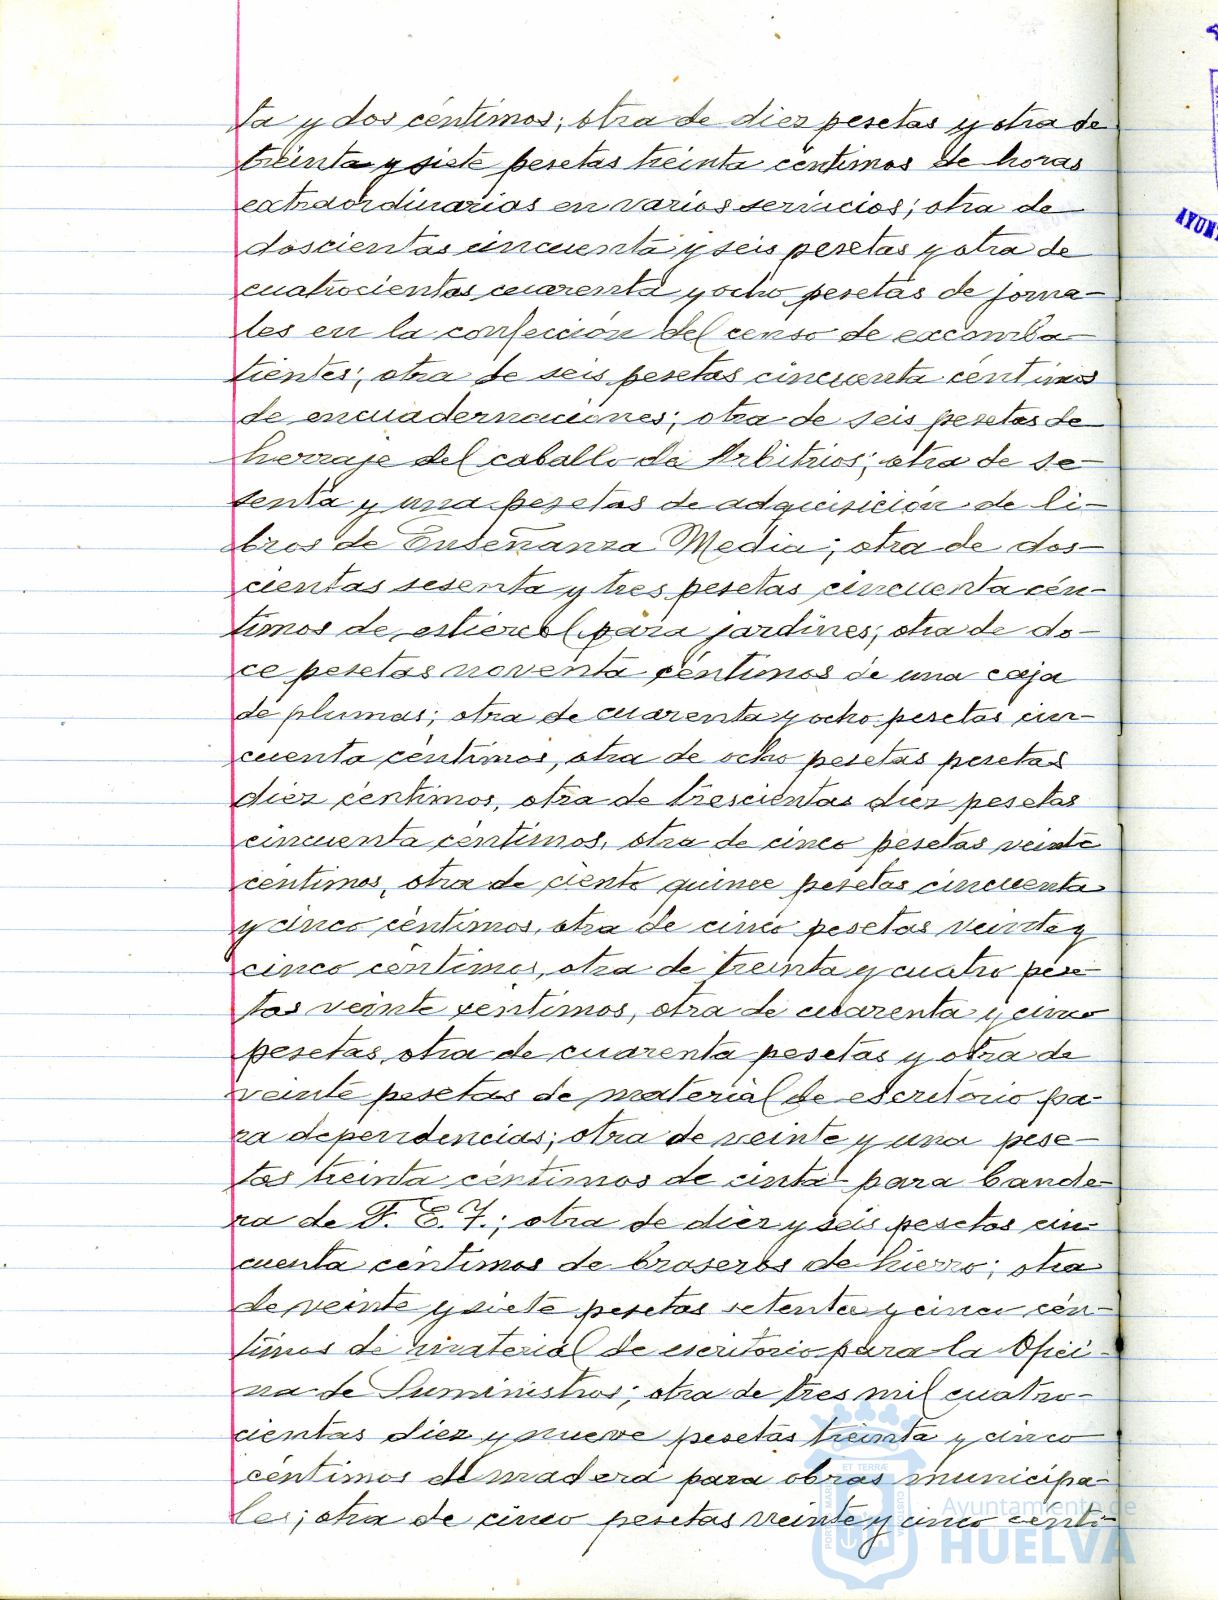 ta y dos céntimos; otra de diez pesetas y otra de
treinta y siete pesetas treinta céntimos de horas
extraordinarias en varios servicios; otra de
doscientas cincuenta y seis pesetas y otra de
cuatrocientas cuarenta y ocho pesetas de jorna-
les en la confección del censo de excomba-
tientes; otra de seis pesetas cincuenta céntimos
de encuadernaciones; otra de seis pesetas de
herraje del caballo de Arbitrios; otra de se-
senta y una pesetas de adquisición de li-
bros de Enseñanza Media; otra de dos-
cientas sesenta y tres pesetas cincuenta cén-
timos de estiercol para jardines; otra de do-
ce pesetas noventa céntimos de una caja
de plumas; otra de cuarenta y ocho pesetas cin-
cuenta céntimos, otra de ocho pesetas pesetas
diez céntimos, otra de trescientas diez pesetas
cincuenta céntimos, otra de cinco pesetas veinte
céntimos, otra de ciento quince pesetas cincuenta
y cinco céntimos, otra de cinco pesetas veinte y
cinco céntimos, otra de treinta y cuatro pese-
tas veinte céntimos, otra de cuarenta y cinco
pesetas, otra de cuarenta pesetas y otra de
veinte pesetas de material de escritorio pa-
ra dependencias; otra de veinte y una pese-
tas treinta céntimos de cinta para bande-
ra de F. E. T.; otra de diez y seis pesetas cin-
cuenta céntimos de braseros de hierro; otra
de veinte y siete pesetas setenta y cinco cén-
timos de material de escritorio para la Ofici-
na de Suministros; otra de tres mil cuatro-
cientas diez y nueve pesetas treinta y cinco
céntimos de madera para obras municipa-
les; otra de cinco pesetas veinte y cinco cénti-
Ayuntamiento de
HUELVA